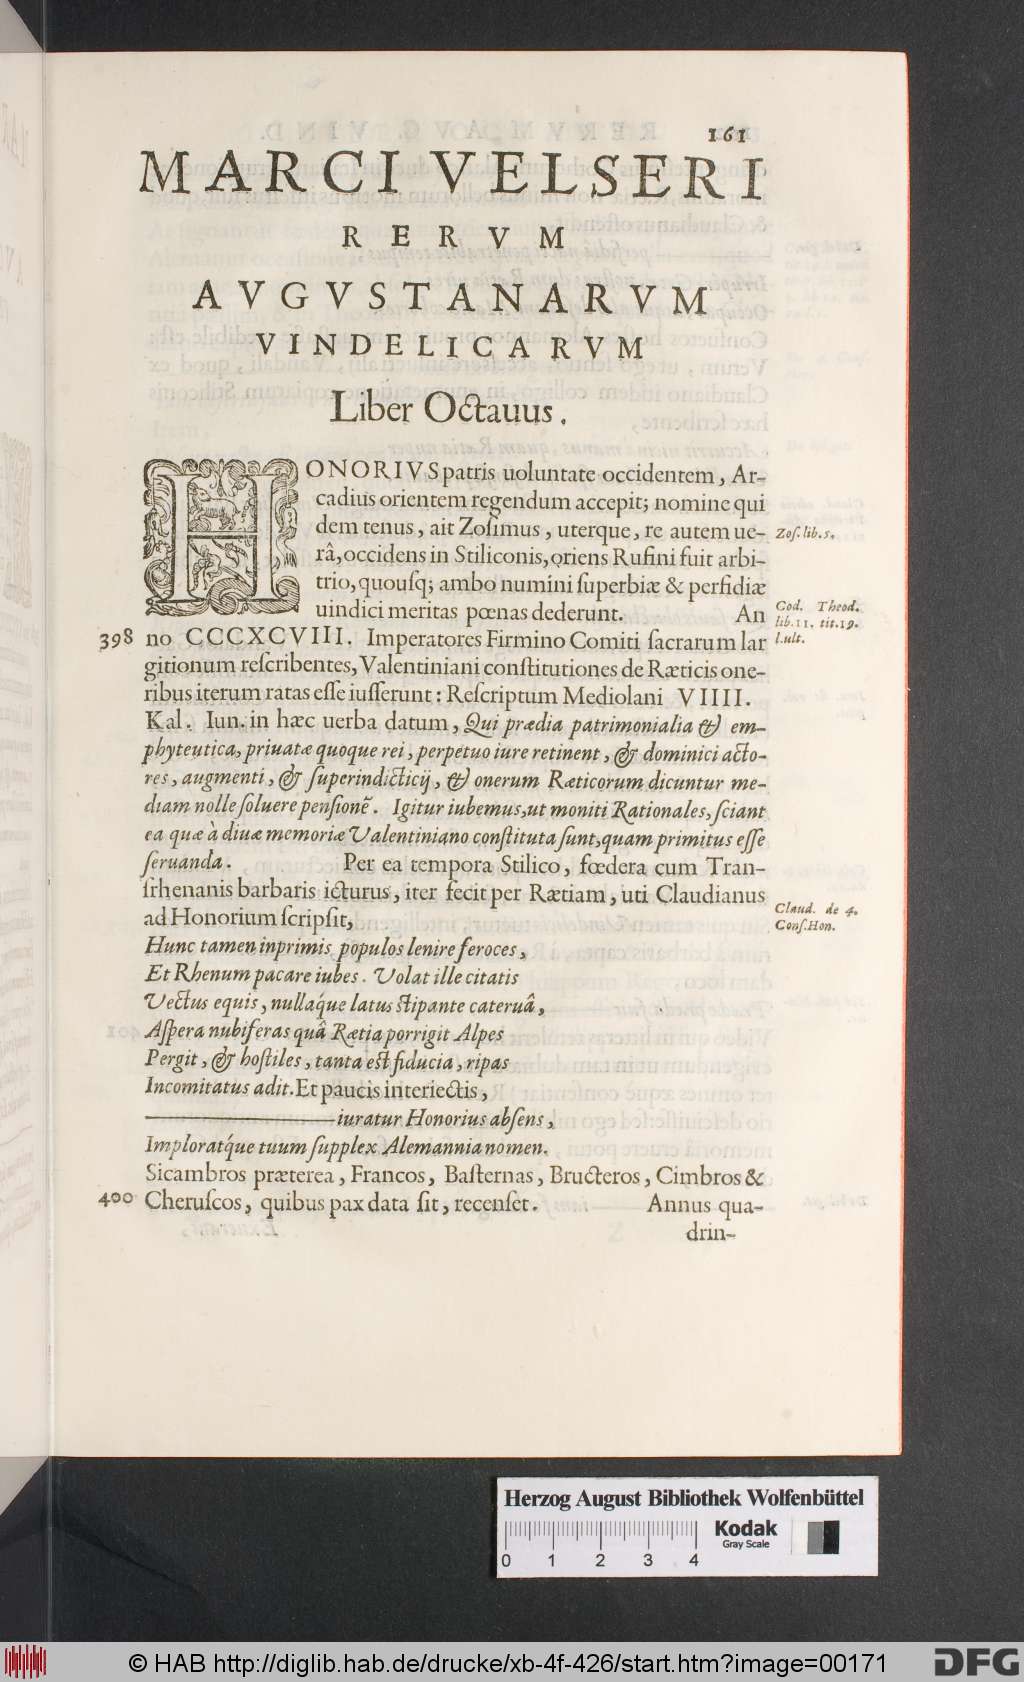 161
MARCI VELSERI
RERVM
AVGVSTANARVM
VINDELICARVM
Liber Octauus.
HONORIVS patris uoluntate occidentem, Ar-
cadius orientem regendum accepit; nomine qui
dem tenus, ait Zoſimus, uterque, re autem ue-
Zoſ. lib. 5.
râ, occidens in Stiliconis, oriens Rufini fuit arbi-
trio, quouſq; ambo numini ſuperbiæ & perfidiæ
uindici meritas pœnas dederunt. An
Cod. Theod.
lib. 11. tit. 19.
l. ult.
398 no CCCXCVIII. Imperatores Firmino Comiti ſacrarum lar
gitionum reſcribentes, Valentiniani conſtitutiones de Ræticis one-
ribus iterum ratas eſſe iuſſerunt: Reſcriptum Mediolani VIIII.
Kal. Iun. in hæc uerba datum, Qui prædia patrimonialia & em-
phyteutica, priuatæ quoque rei, perpetuo iure retinent, & dominici acto-
res, augmenti, & ſuperindicticij, & onerum Ræticorum dicuntur me-
diam nolle ſoluere penſionẽ. Igitur iubemus, ut moniti Rationales, ſciant
ea quæ à diuæ memoriæ Valentiniano conſtituta ſunt, quam primitus eſſe
ſeruanda. Per ea tempora Stilico, fœdera cum Tran-
ſrhenanis barbaris icturus, iter fecit per Rætiam, uti Claudianus
ad Honorium ſcripſit,
Claud. de 4.
Conſ. Hon.
Hunc tamen inprimis populos lenire feroces,
Et Rhenum pacare iubes. Volat ille citatis
Vectus equis, nullaq́ue latus ſtipante cateruâ,
Aſpera nubiferas quâ Rætia porrigit Alpes
Pergit, & hoſtiles, tanta eſt fiducia, ripas
Incomitatus adit. Et paucis interiectis,
—————— iuratur Honorius abſens,
Imploratq́ue tuum ſupplex Alemannia nomen.
Sicambros præterea, Francos, Baſternas, Bructeros, Cimbros &
400 Cheruſcos, quibus pax data ſit, recenſet. Annus qua-
drin-
Herzog August Bibliothek Wolfenbüttel
0 1 2 3 4
Kodak
Gray Scale
© HAB http://diglib.hab.de/drucke/xb-4f-426/start.htm?image=00171
DFG